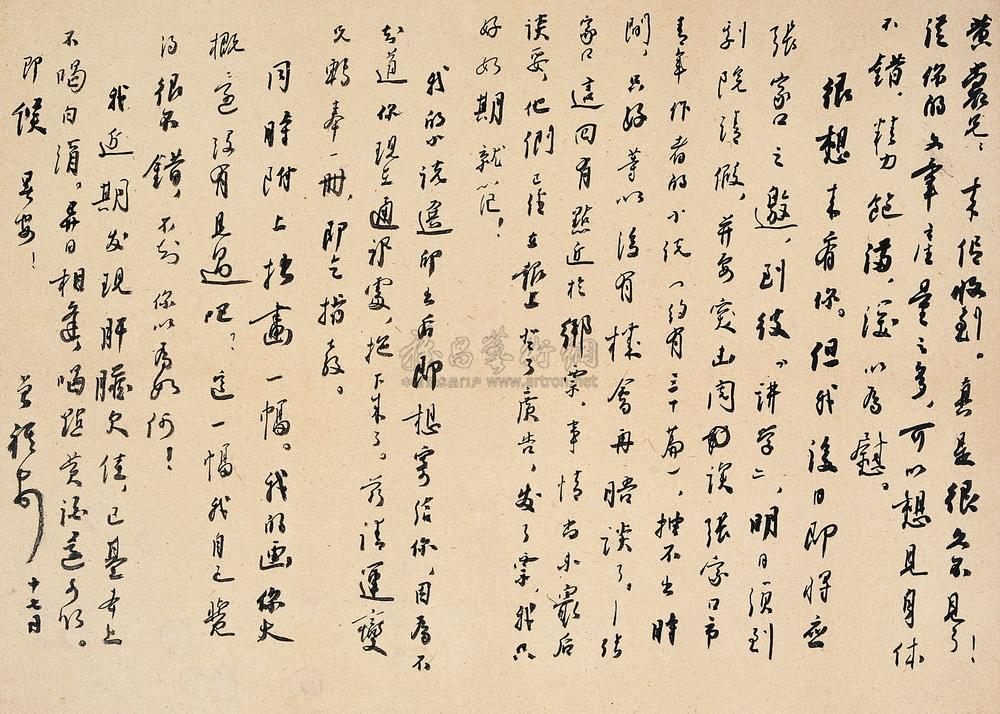 黄裳兄：来信收到。真是很久不见了！
从你的文章产量之多，可以想见身体
不错，精力饱满，深以为慰。
很想来看你。但我后日即将应
张家口之邀，到彼"讲学"，明日须到
剧院请假，并要突击阅读张家口市
青年作者的小说（约有三十篇），抽不出时
间，只好等以后有机会再晤谈了。（张
家口这回有点近于绑票，事情尚未最后
谈妥，他们已经在报上登了广告，发了票，我只
好如期就范！
我的小说选印出后即想寄给你，因为不
知道你现在通讯处，拖下来了。兹请运燮
兄转奉一册，即乞指教。
同时附上拙画一幅。我的画你大
概还没有见过吧？这一幅我自己觉
得很不错，不知你以为如何！
我近期发现肝脏欠佳，已基本上
不喝白酒。异日相逢，喝点黄酒还可以。
即候
曼安！
曾祺 顿
十七日
振昌艺术网
www.artron.net